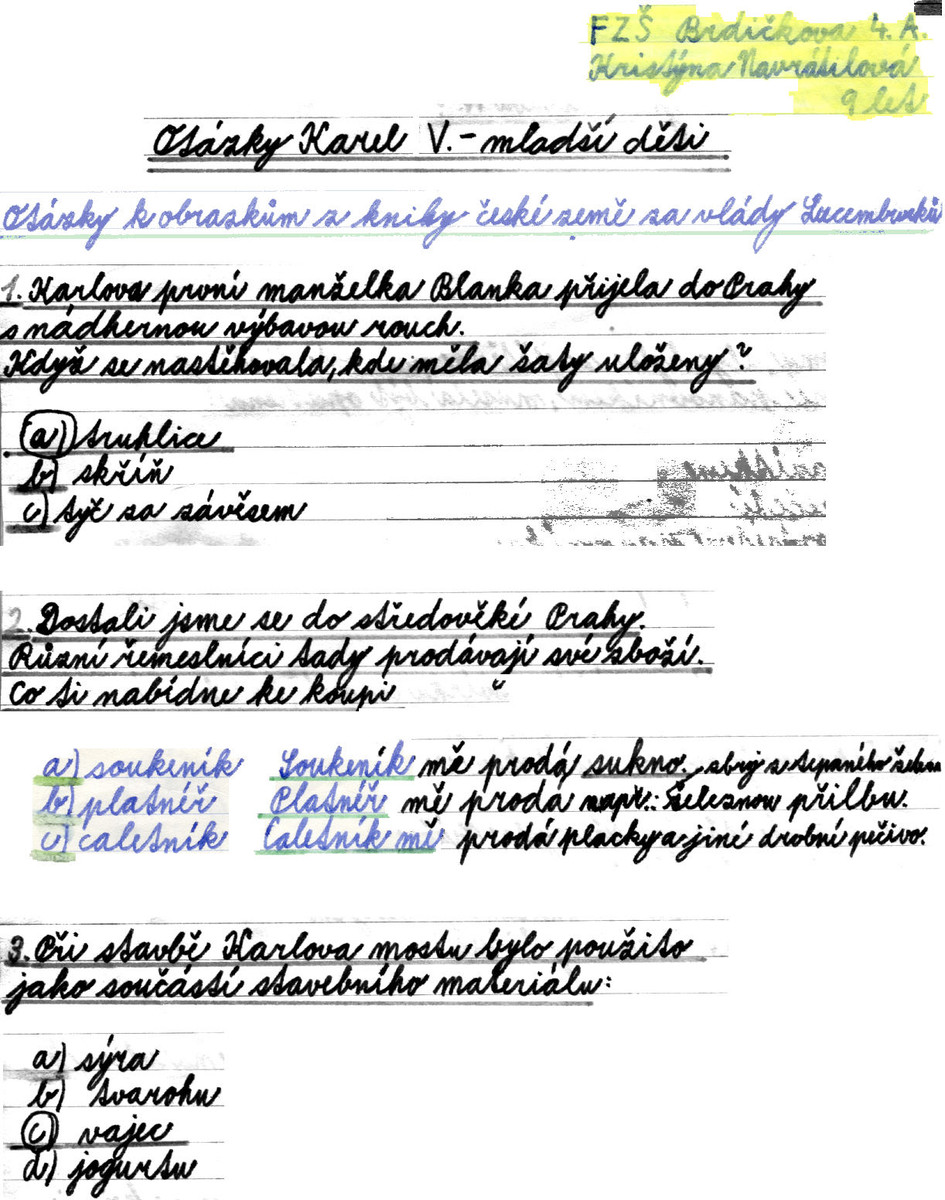 FZŠ Brdičkova 4. A.
Kristýna Navrátilová
9 let
Otázky Karel V. - mladší děti
Otázky k obrazkům z knihy české země za vlády Lucemburků
1. Karlova první manželka Blanka přijela do Prahy
s nádhernou výbavou rouch.
Když se nastěhovala, kde měla šaty uloženy?
a) truhlice
b) skříň
c) tyč za závěsem
2. Dostali jsme se do středověké Prahy.
Různí řemeslníci tady prodávají své zboží.
Co ti nabídne ke koupi
a) soukeník Soukeník mě prodá sukno. zbroj z tepaného železa
b) platnéř Platnéř mě prodá např.: Železnou přilbu.
c) caletník Caletník mě prodá placky a jiné drobné pečivo.
3. Při stavbě Karlova mostu bylo použito
jako součástí stavebního materiálu:
a) sýra
b) tvarohu
c) vajec
d) jogurtu